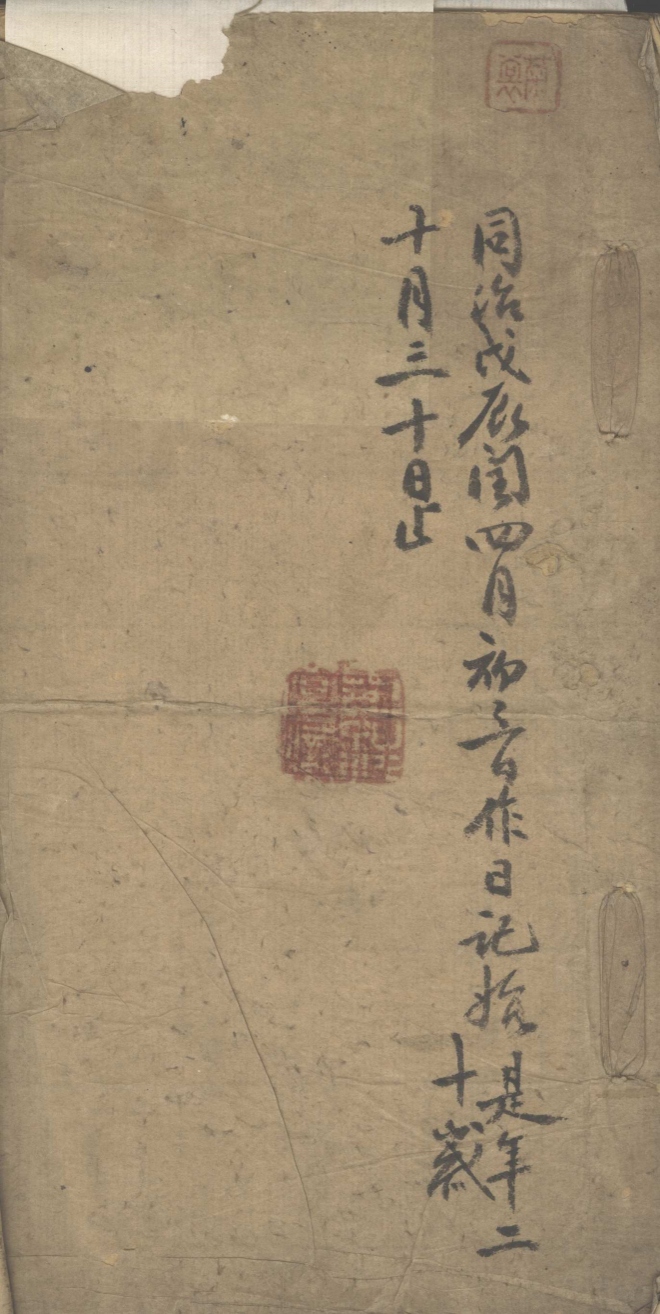 同治戊辰閏四月初三日作日記始是年二
十歲
十月三十日止